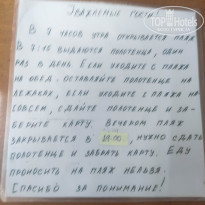 TopHotels
Уважаемые гости!
В 7 часов утра открывается пляж
В 7:00 выдаются полотенца, один
раз в день. Если уходите с пляжа
на обед, оставляйте полотенце на
лежаках, если уходите с пляжа на
совсем, сдайте полотенце и за-
берите карту. Вечером пляж
закрывается в 19:00, нужно сдать
полотенце и забрать карту. Еду
проносить на пляж нельзя.
Спасибо за понимание!